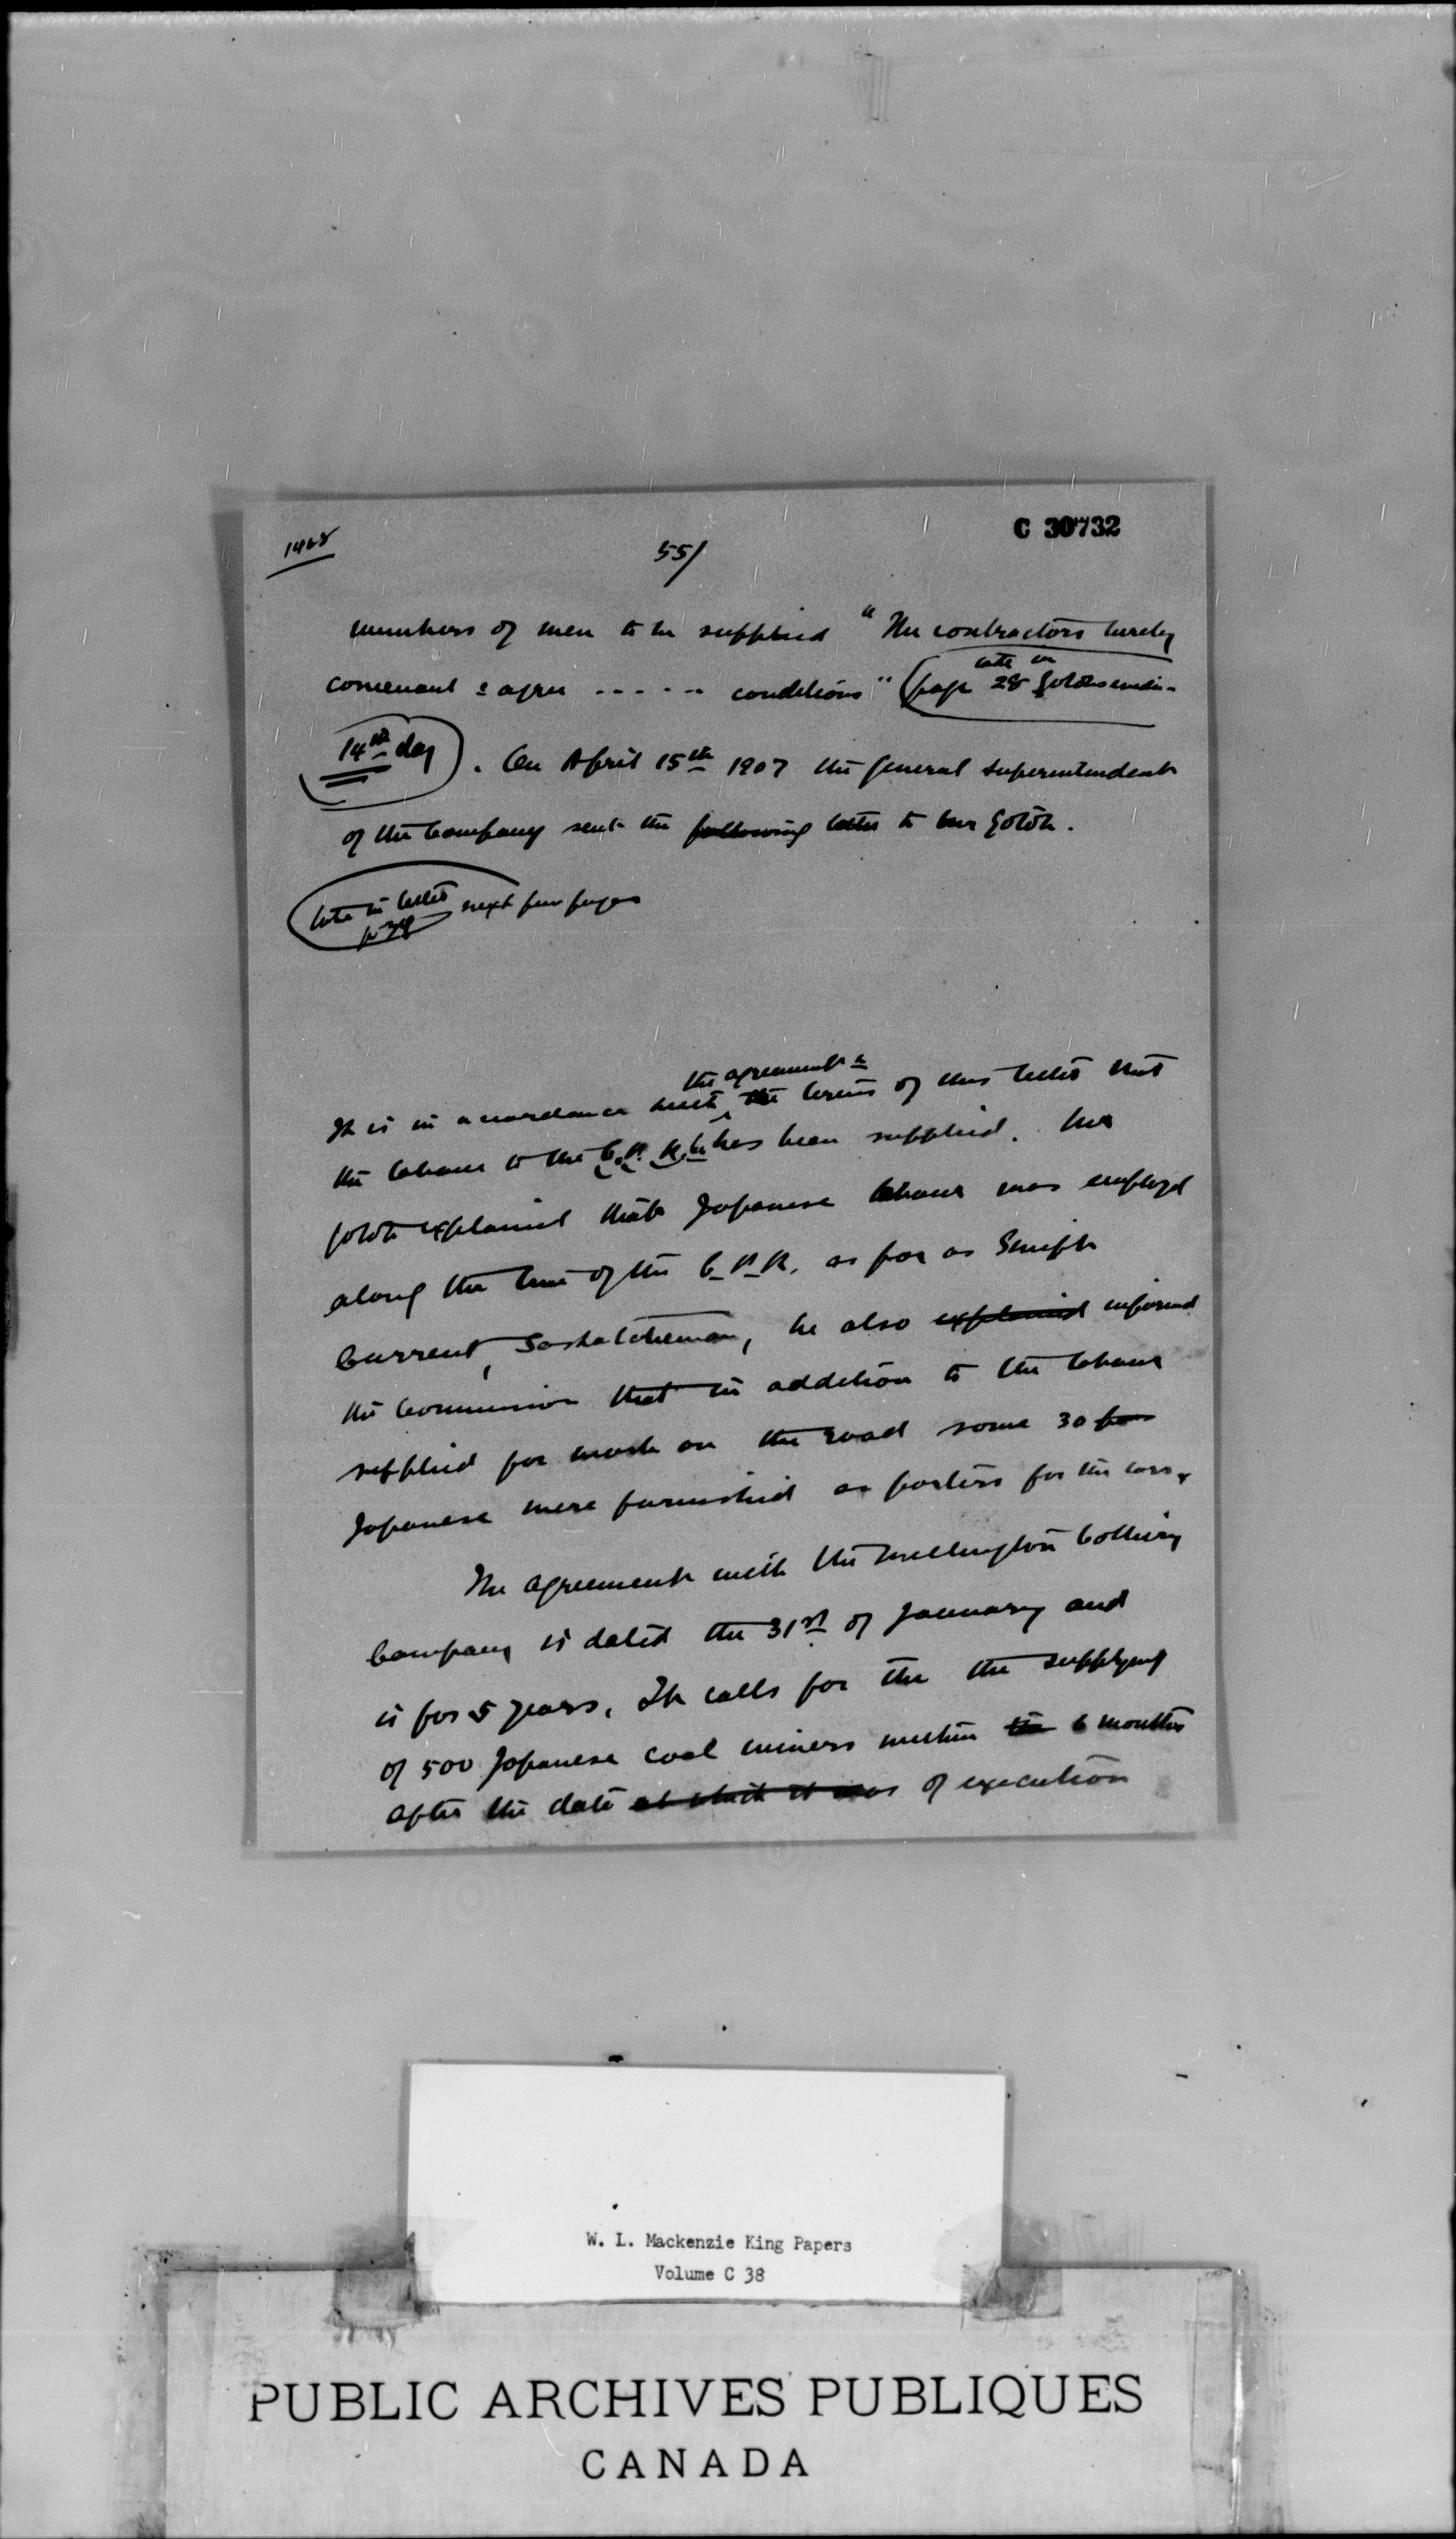 C 30732
1468
55/
numbers of men to be supplied "The contractors hereby
covenant & agree ------ conditions" (page 28 Gotohs eviden-
cite in
14th day). On April 15th 1907 the General Superintendent
of the Company sent the following letter to Mr Gotoh.
cite in letter next few pages
the agreement &
It is in accordance with the terms of this letter that
the labour to the C.P.R. has been supplied. Mr
Gotoh explained that Japanese labour was employed
along the line of the C.P.R. as far as Swift
Current, Saskatchewan, he also explained informed
the Commission that in addition to the labour
supplied for work on the road some 30
Japanese were furnished as porters for the cars.
The agreement with the Wellington Colliery
Company is dated the 31st of January and
is for 5 years. It calls for the the supplying
of 500 Japanese coal miners within the 6 months
after the date at which it was of execution
W. L. Mackenzie King Papers
Volume C 38
PUBLIC ARCHIVES PUBLIQUES
CANADA